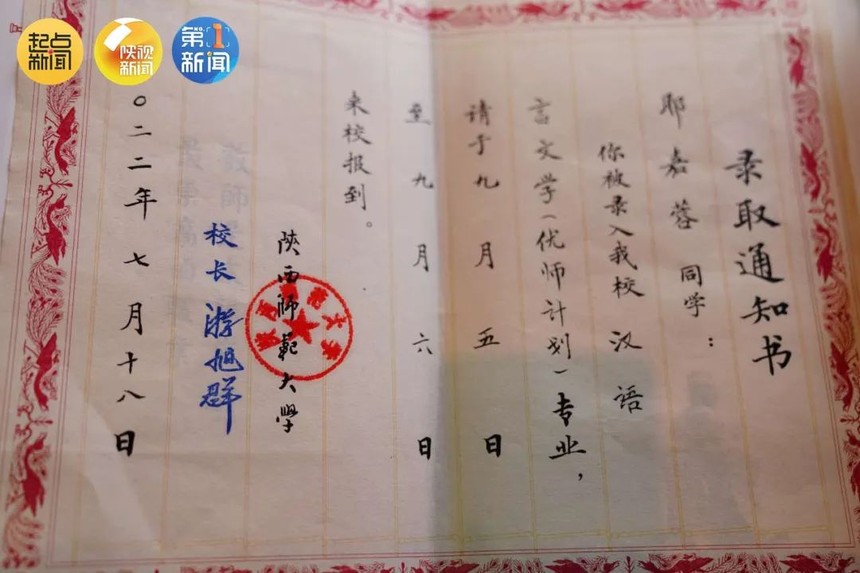 起点新闻
陕视新闻
第1新闻
录取通知书
耶嘉蓉 同学：
你被录入我校 汉语
言文学（优师计划）专业，
请于九月五日
至九月六日
来校报到。
陝西師範大學
校长 游旭群
〇二二年七月十八日